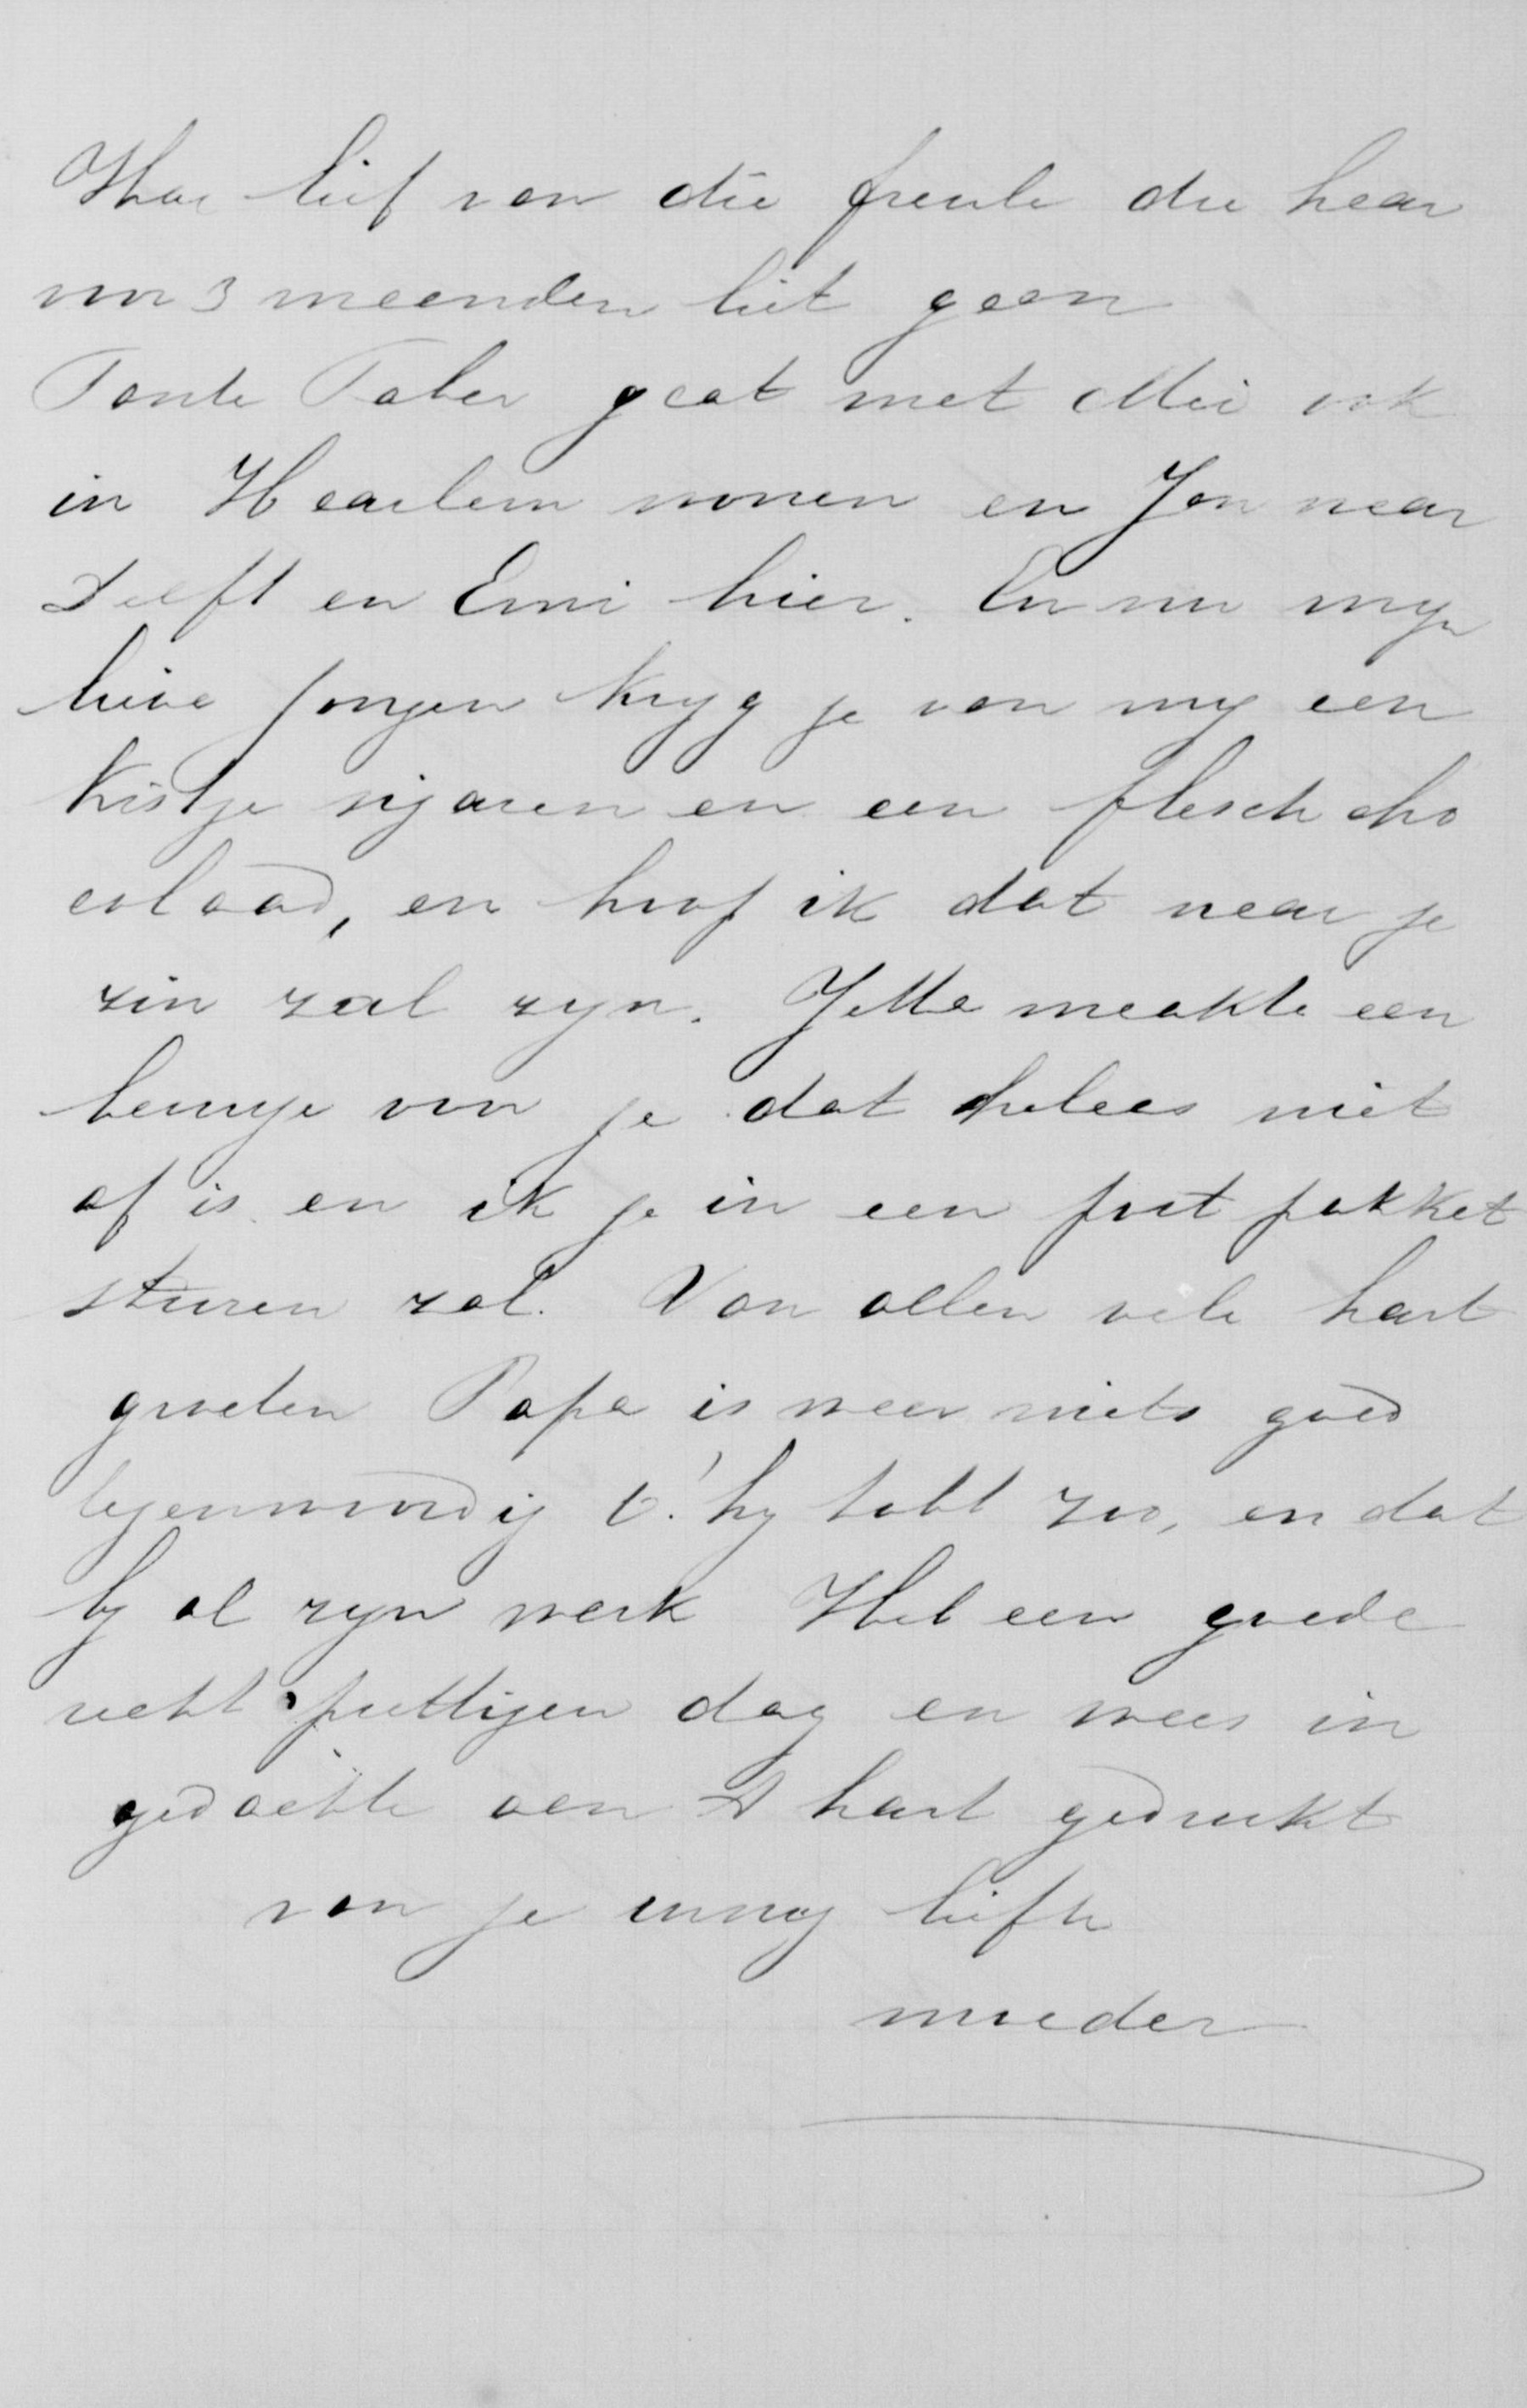 Hoe lief van die freule die haar
voor 3 maanden liet gaan
Tante Faber gaat met Mei ook
in Haarlem wonen en Jan naar
Delft en Emi hier. En nu myn
lieve jongen kryg je van my een
kistje sigaren en een flesch cho
colaad, en hoop ik dat naar je
zin zal zyn. Jetta maakte een
voor je dat helaas niet
af is en ik je in een post pakket
sturen zal. Van allen vele hart
groeten Papa is weer niets goed
tegenwoordig hy tobt zoo, en dat
by al zyn werk Heb een goede
recht prettigen dag en wees in
gedachte aan 't hart gedrukt
van je innig liefh
moeder